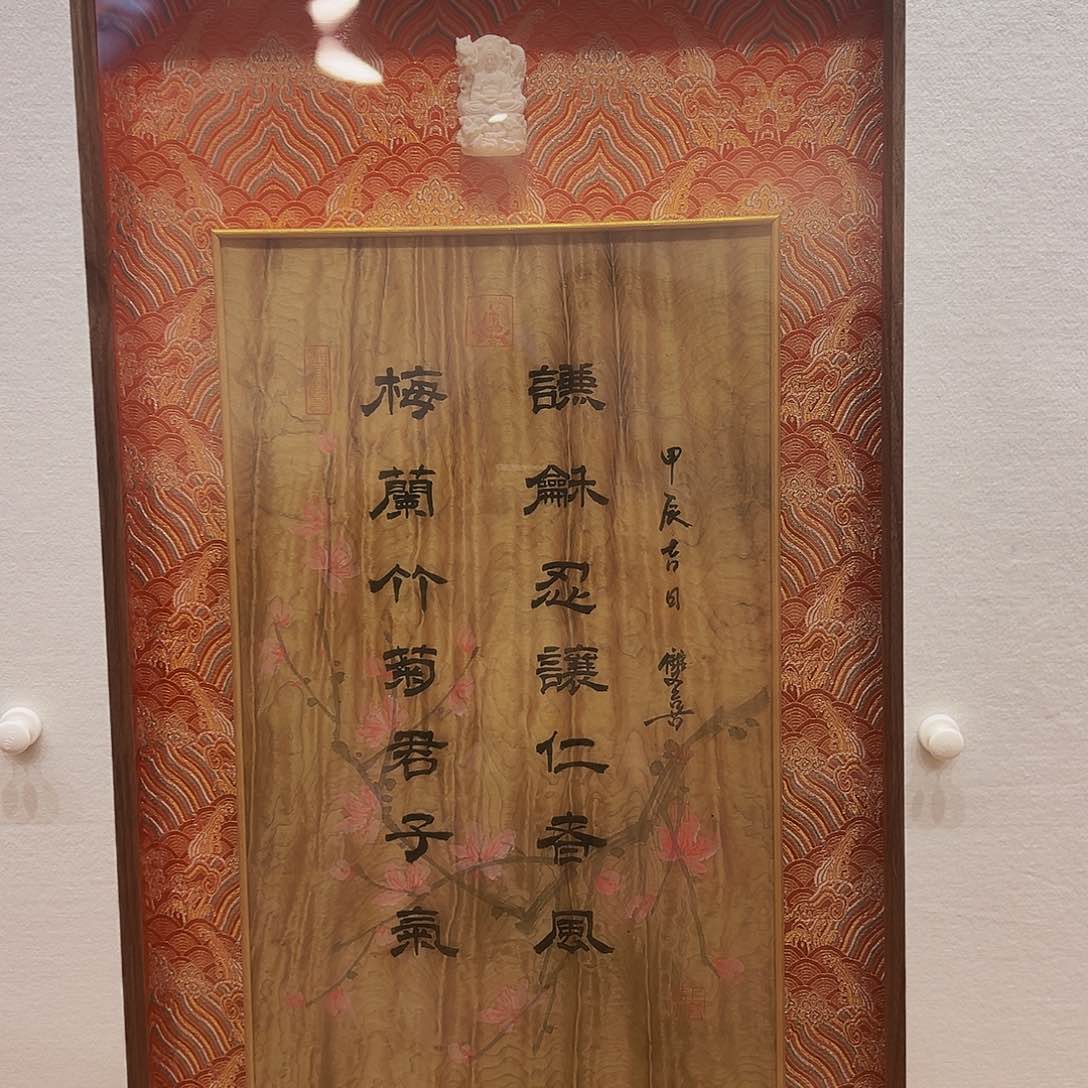 梅蘭竹菊君子氣
謙龢忍讓仁者風
甲辰吉日 雙喜